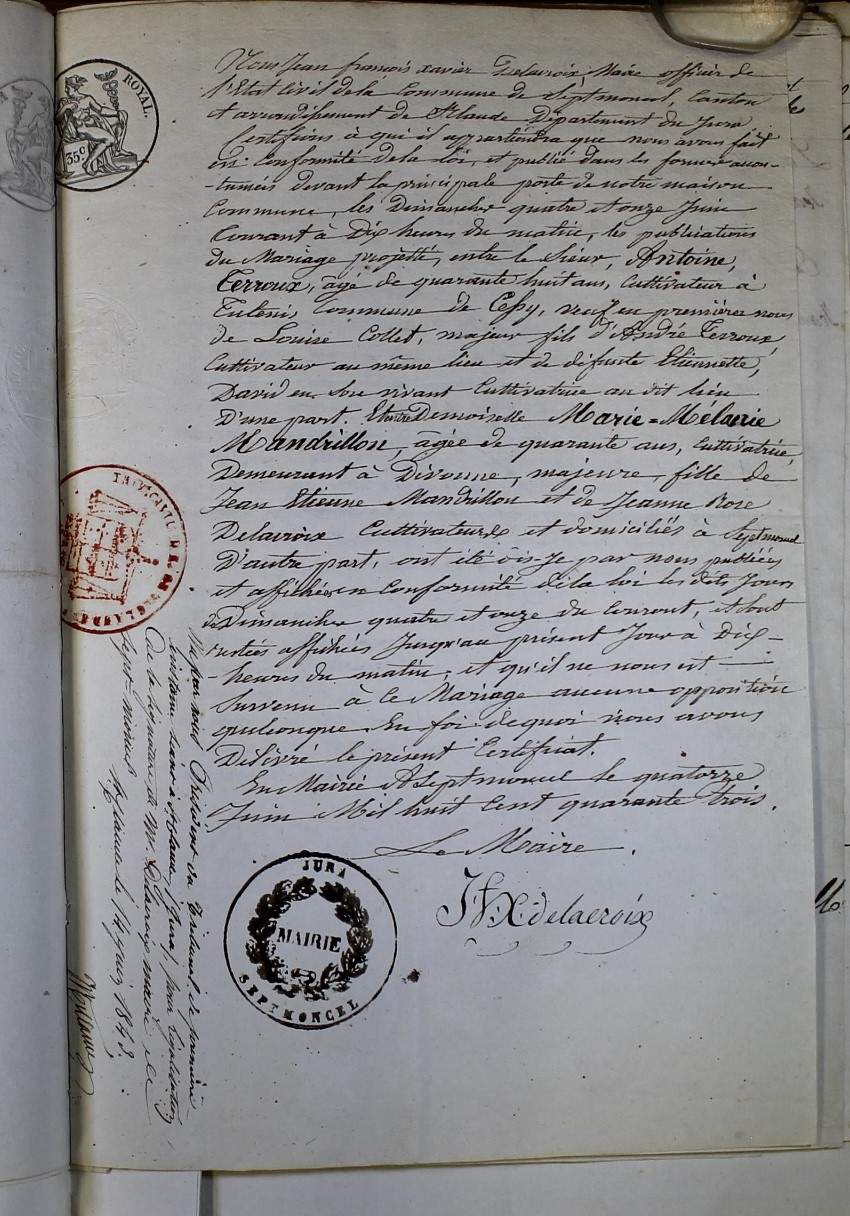 ROYAL.
35c
Nous Jean françois xavier Delacroix, Maire officier de
l'Etat Civil de la Commune de Septmoncel, Canton
et arrondissement de St Claude Département du Jura
Certifions à qui il appartiendra que nous avons fait
en Conformité de la loi, et publié dans les formes accou-
-tumées devant la principale porte de notre maison
Commune, les Dimanches quatre et onze Juin
Courant à Dix heures du matin, les publications
du Mariage projetté, entre le Sieur, Antoine,
Terroux, âgé de quarante huit ans, Cultivateur à
Commune de Cessy, veuf en premières noces
de Louise Collet, majeur fils d'André Terroux,
Cultivateur au même lieu et de défunte Etiennette,
David en son vivant Cultivatrice au dit lieu
D'une part. Et entre Demoiselle Marie=Mélanie
Mandrillon, âgée de quarante ans, Cultivatrice,
Demeurant à Divonne, majeure, fille de
Jean Etienne Mandrillon et de Jeanne Rose
Delacroix Cultivateurs et domiciliés à Septmoncel
D'autre part, ont été par nous publiées
et affichées en Conformité de la loi les dits Jours
de Dimanche quatre et onze du Courant, et sont
restées affichées Jusqu'au présent Jour à Dix-
-heures du matin, et qu'il ne nous est
Survenu à ce Mariage aucune opposition
quelconque. En foi de quoi nous avons
Délivré le présent Certificat.
En Mairie A Septmoncel le quatorze
Juin Mil huit Cent quarante trois.
Le Maire.
JFX Delacroix
JURA
MAIRIE
SEPTMONCEL
Vu par nous Président du Tribunal de première
instance séant à St Claude (Jura), pour légalisation
De la signature de Mr Delacroix maire de
Sept-moncel St Claude le 14 juin 1843.